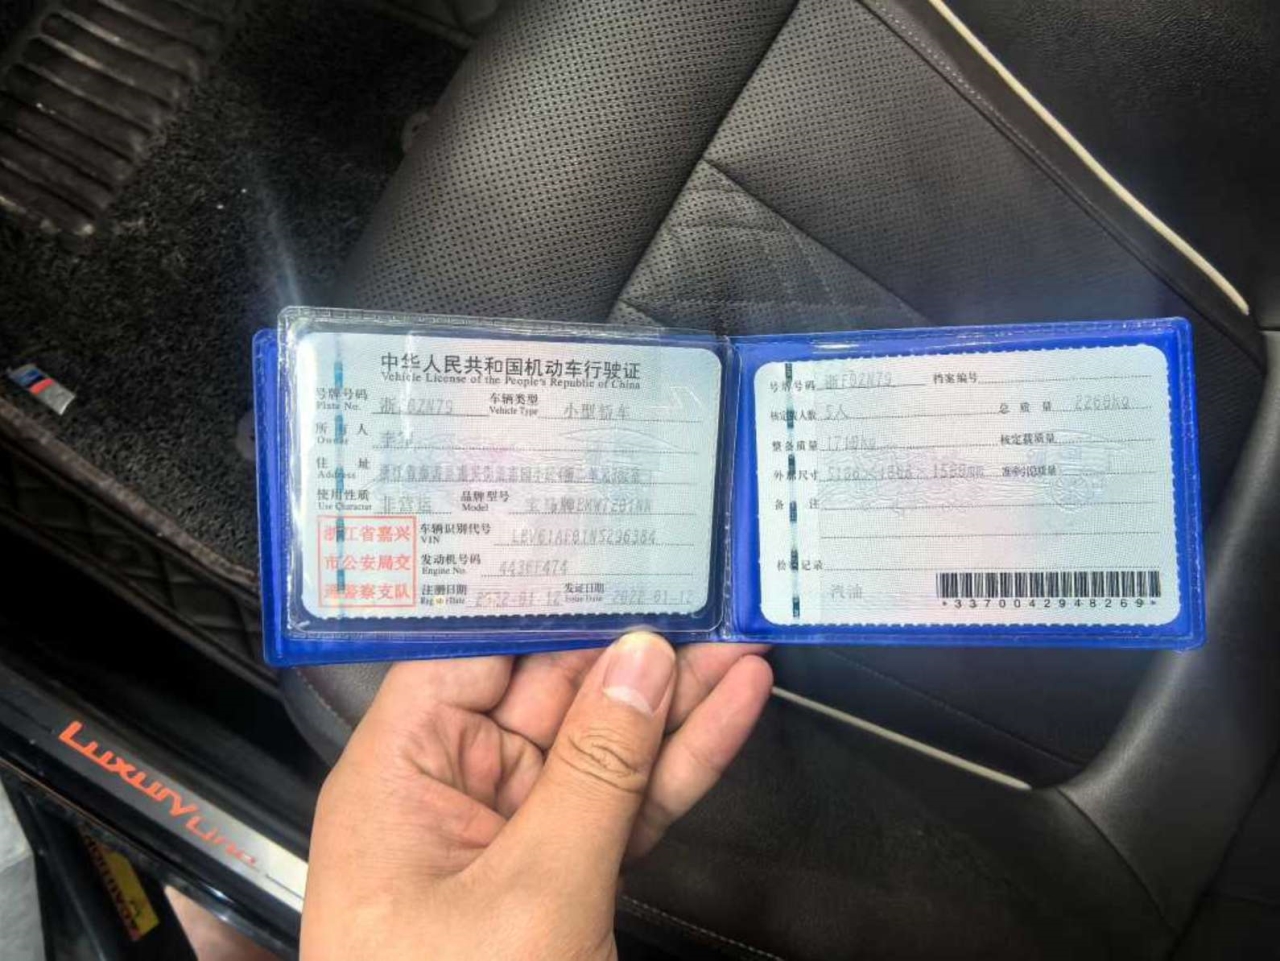 中华人民共和国机动车行驶证
Vehicle License of the People's Republic of China
号牌号码 浙 车辆类型 小型轿车
Plate No. Vehicle Type
所有人
Owner
住址
Address
使用性质 非营运 品牌型号 宝马牌
Use Character Model
浙江省嘉兴
市公安局交
通警察支队
车辆识别代号
VIN
发动机号码
Engine No.
注册日期 2022-01-12 发证日期 2022-01-12
Register Date Issue Date
号牌号码 浙F0ZN79 档案编号
核定载人数 5人 总质量 2260kg
整备质量 核定载质量
外廓尺寸 准牵引总质量
备注
检验记录
汽油
*3370042948269*
LUXURY LINE